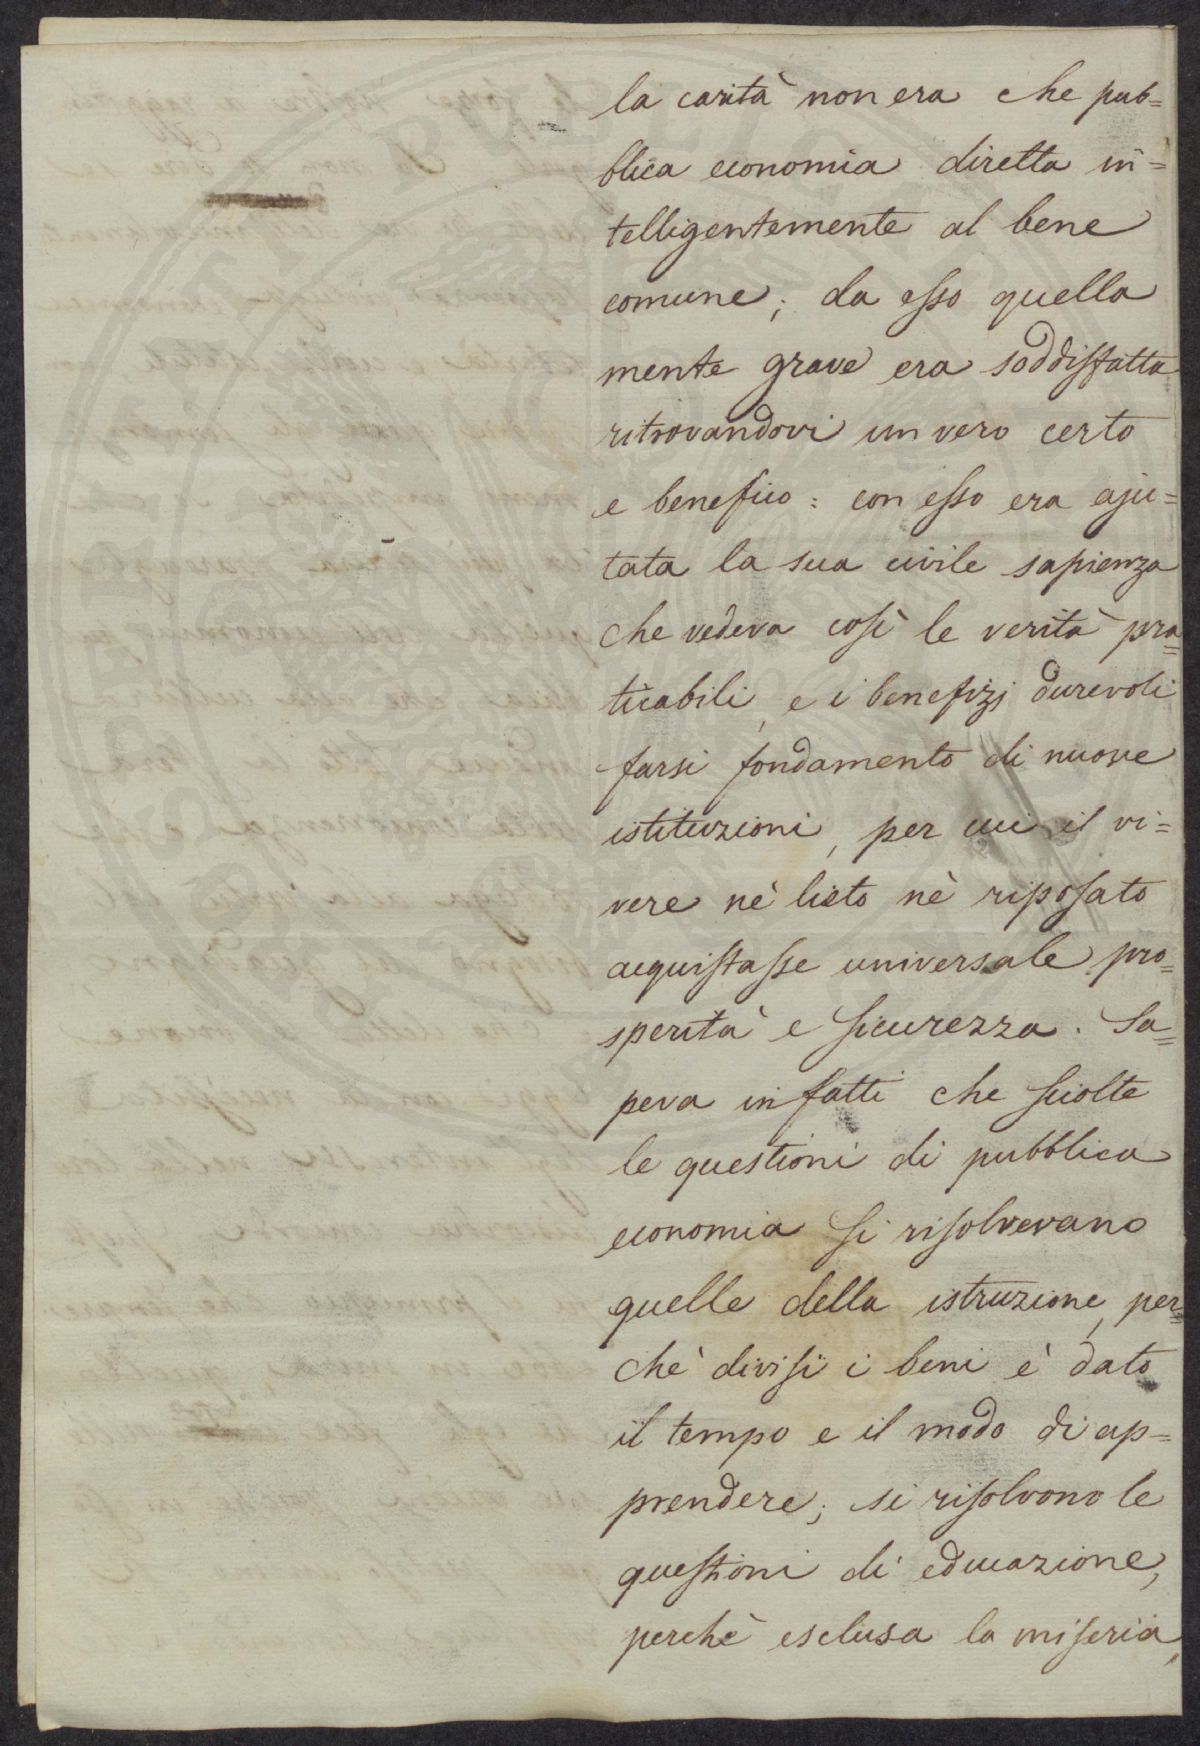 la carità non era che pub=
blica economia diretta in=
telligentemente al bene
comune; da esso quella
mente grave era soddisfatta
ritrovandovi un vero certo
e benefico: con esso era aju=
tata la sua civile sapienza
che vedeva così le verità pra=
ticabili, e i benefizj durevoli
farsi fondamento di nuove
istituzioni, per cui il vi=
vere nè lieto nè riposato
acquistasse universale pro=
sperità e sicurezza. Sa=
peva infatti che sciolte
le questioni di pubblica
economia si risolvevano
quelle della istruzione, per=
chè divisi i beni è dato
il tempo e il modo di ap=
prendere; si risolvono le
questioni di educazione,
perchè esclusa la miseria,